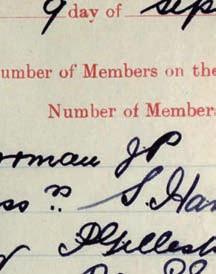 9 day of Sep
umber of Members on the
Number of Member
orman JP
ss " S. Har
Gillesp